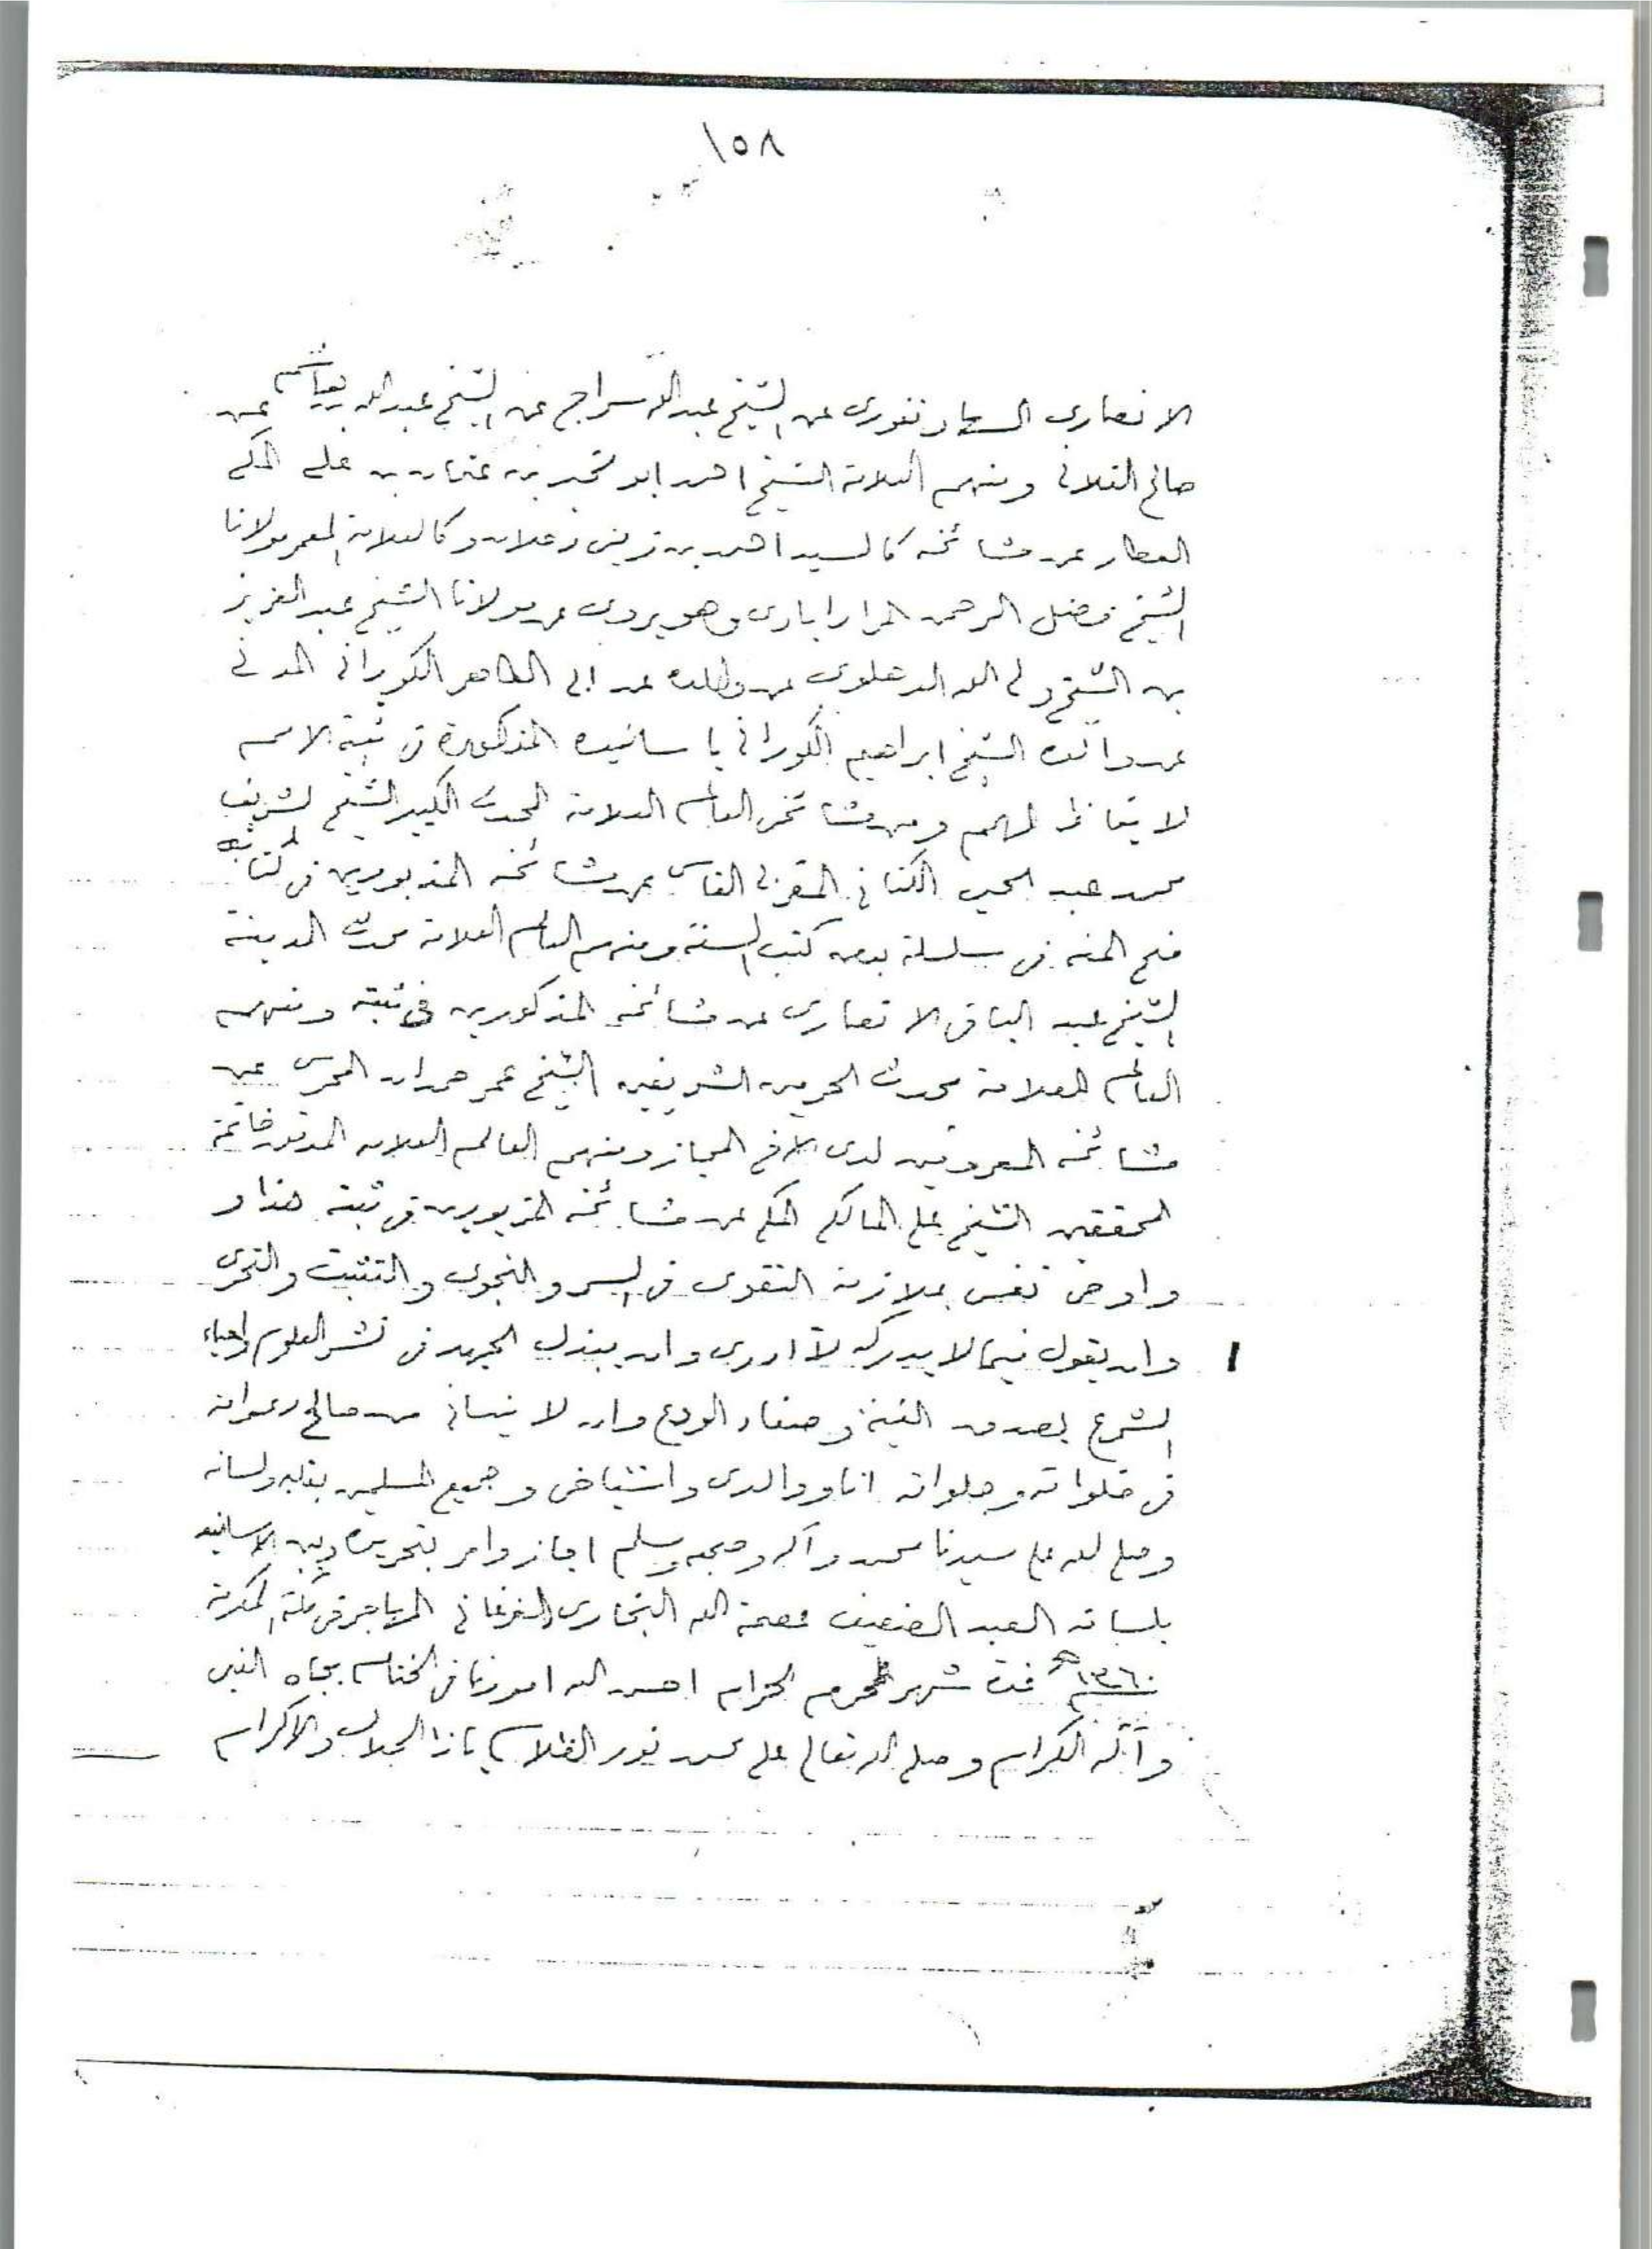 ١٥٨
الانصاري السهارنفوري عن الشيخ عبد الله سراج عن الشيخ عبد الله عن
صالح الفلاني ومنهم العلامة الشيخ احمد ابو الخير بن عثمان بن علي المكي
العطار عن مشائخه كالسيد احمد بن زيني دحلان وكالعلامة المعمر مولانا
الشيخ فضل الرحمن المرادابادى وهو يروى عن مولانا الشيخ عبد العزيز
بن الشيخ ولي الله الدهلوى عن والده عن ابي الطاهر الكوراني المدني
عن والده الشيخ ابراهيم الكوراني باسانيده المذكورة في ثبته الامم
لايقاظ الهمم ومن مشائخي العالم العلامة المحدث الكبير الشيخ الشريف
محمد عبد الحي الكتاني المغربي الفاسي عن مشائخه المذبورين في كتابه
منح المنة في سلسلة بعض كتب السنة ومنهم العالم العلامة محدث المدينة
الشيخ عبد الباقي الانصارى عن مشائخه المذكورين في ثبته ومنهم
العالم العلامة محدث الحرمين الشريفين الشيخ عمر حمدان المحرسي عن
مشائخه المعروفين لدى الاخ المجاز ومنهم العالم العلامه المدقق خاتمة
المحققين الشيخ علي المالكي المكي عن مشائخه المزبورين في ثبته هذا و
واوصى نفسي بملازمة التقوى في السر والنجوى والتثبت والتحرى
وان يقول فيما لا يدركه لا ادرى وان يبذل الجهد في نشر العلوم واحياء
الشرع بصدق النية وصفاء الودع وان لا ينساني من صالح دعواته
في خلواته وجلواته انا ووالدى واشياخى وجميع المسلمين بقلبه ولسانه
وصلى الله على سيدنا محمد وآله وصحبه وسلم اجاز وامر بتحريره وبين الاسانيد
بلسانه العبد الضعيف عصمة الله البخارى الفرغاني المهاجر في مكة المكرمة
١٣٦٠ه غرة شهر المحرم الحرام احسن الله امورنا في الختام بجاه النبي
وآله الكرام وصلى الله تعالى على محمد نور الظلام يا ذا الجلال والاكرام